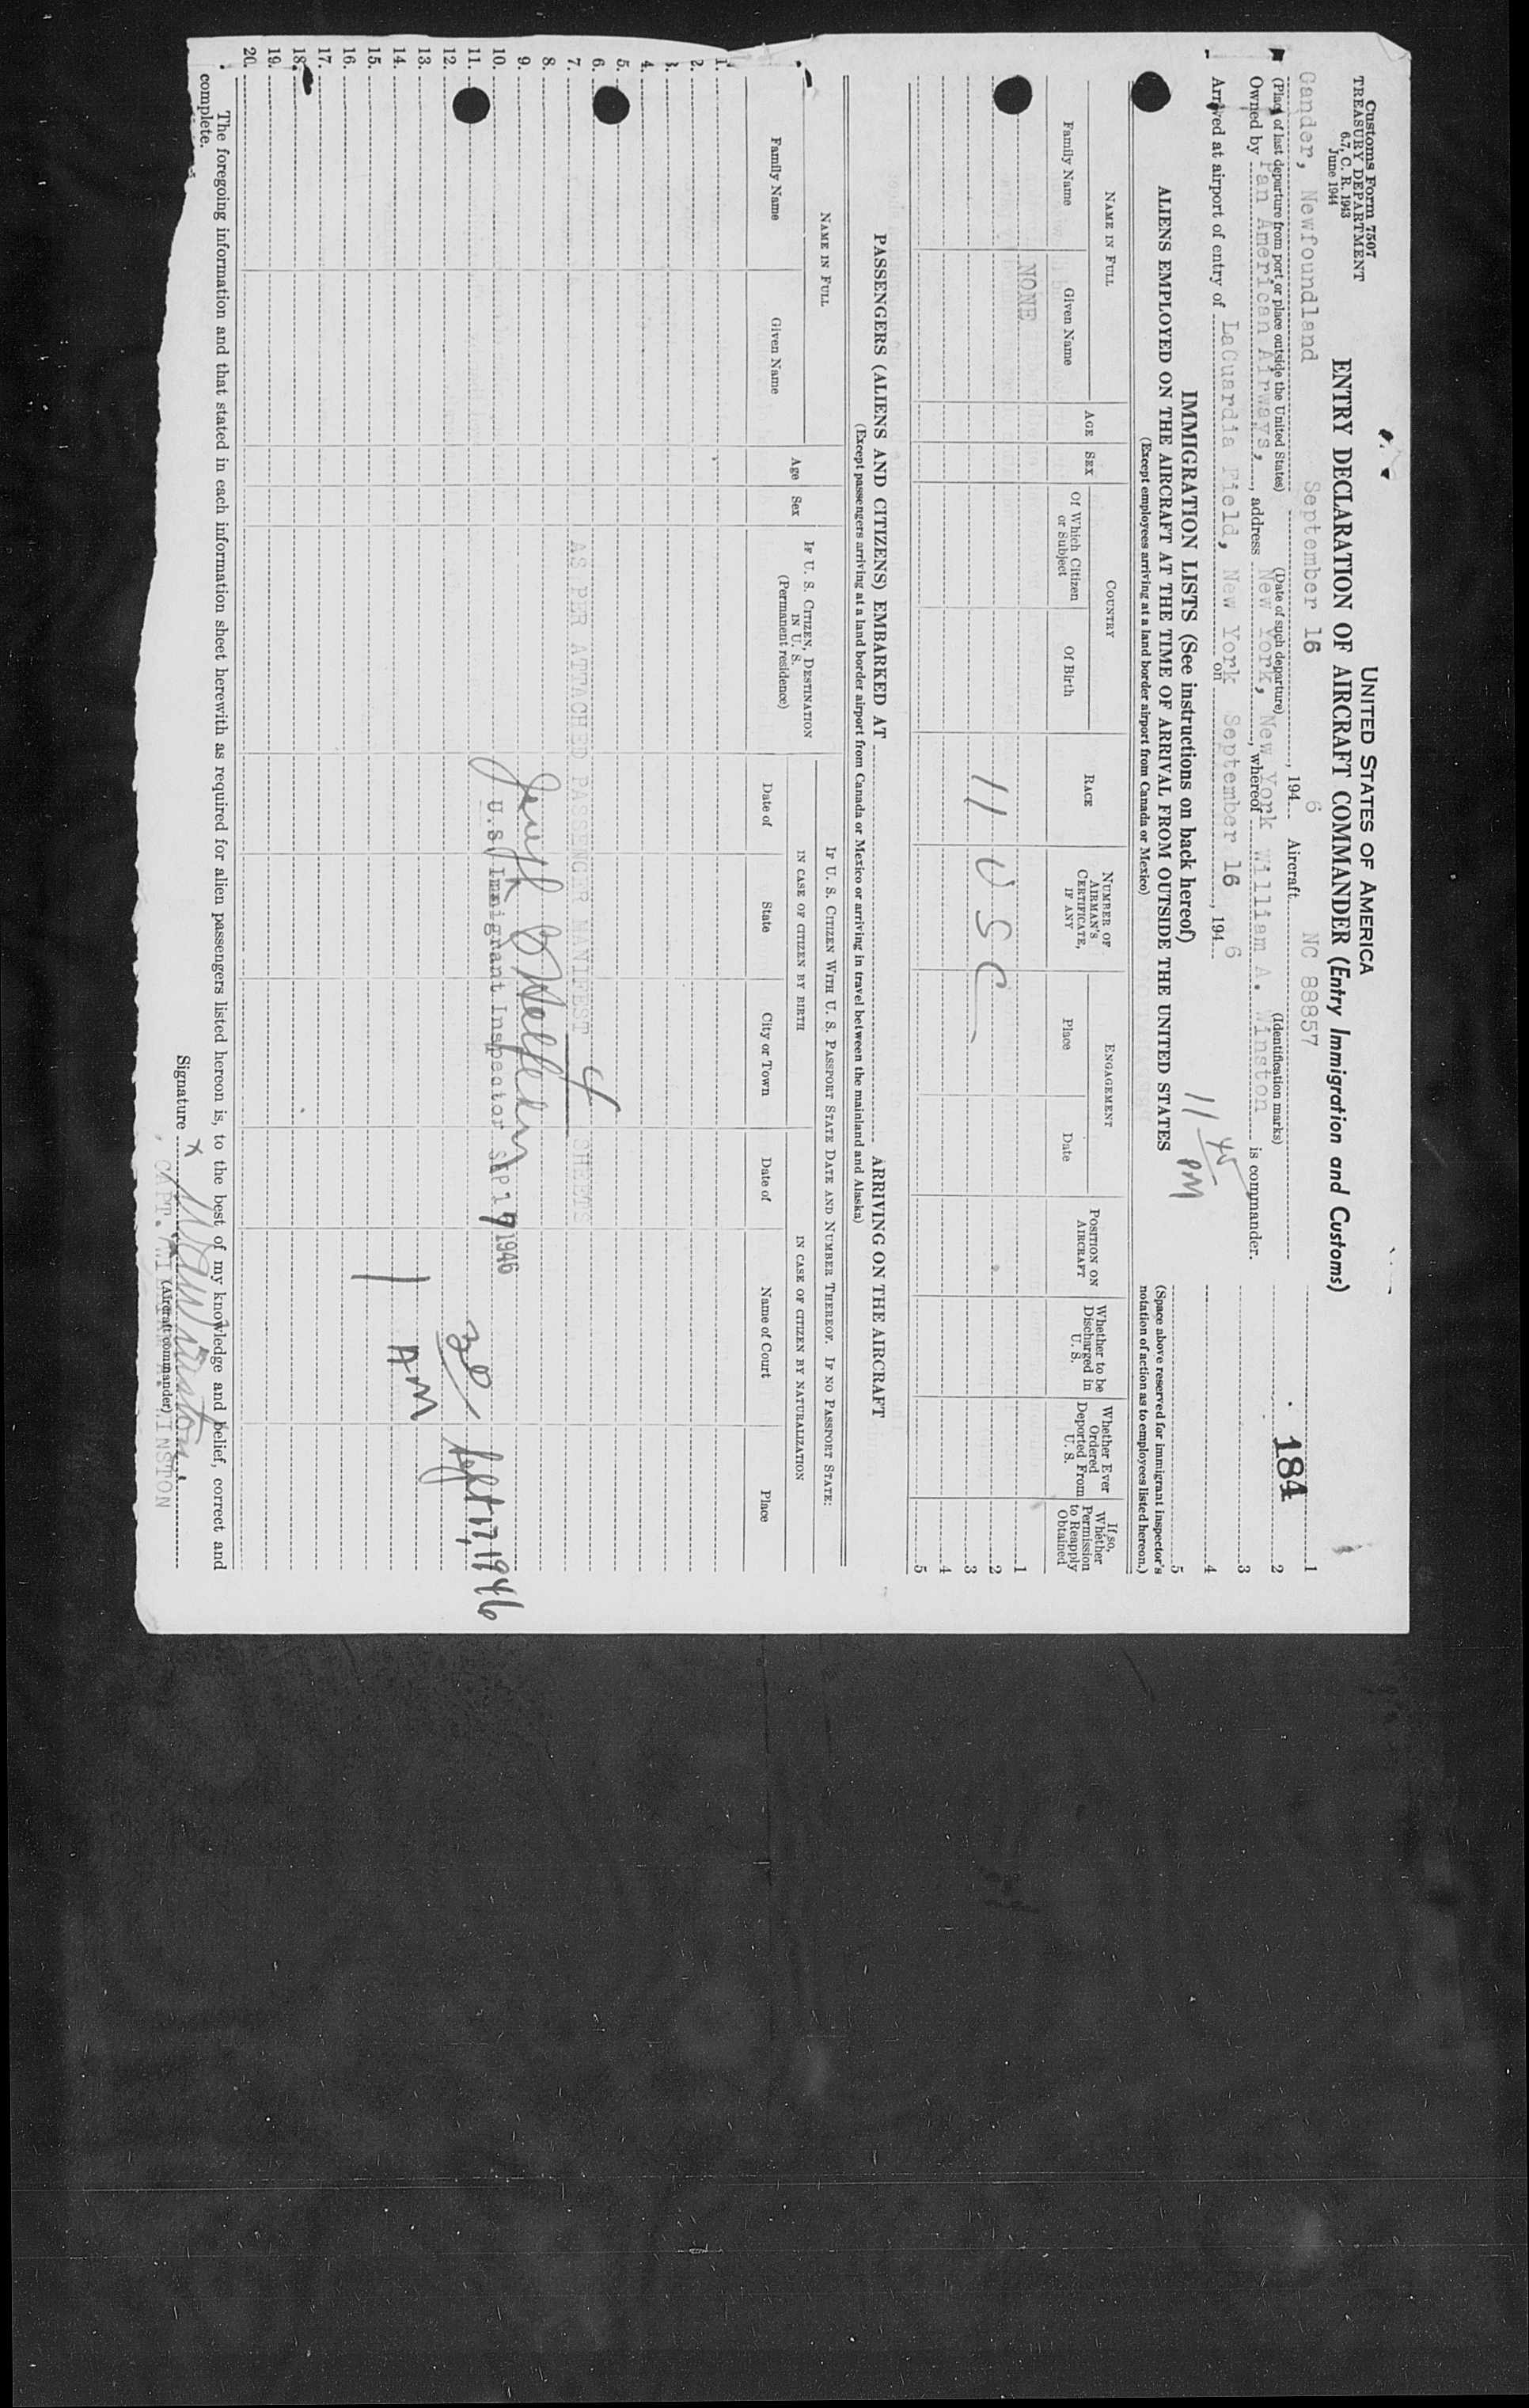 Customs Form 7507
TREASURY DEPARTMENT
6.7, C. R. 1943
June 1944
UNITED STATES OF AMERICA
ENTRY DECLARATION OF AIRCRAFT COMMANDER (Entry Immigration and Customs)
Gander, Newfoundland September 16, 194 6 Aircraft NC 88857
(Place of last departure from port or place outside the United States) (Date of such departure) (Identification marks)
Owned by Pan American Airways, address New York, New York, whereof William A. Winston is commander.
Arrived at airport of entry of LaGuardia Field, New York on September 16, 194 6
11 45 PM
1
184 2
3
4
5
(Space above reserved for immigrant inspector's notation of action as to employees listed hereon.)
IMMIGRATION LISTS (See instructions on back hereof)
ALIENS EMPLOYED ON THE AIRCRAFT AT THE TIME OF ARRIVAL FROM OUTSIDE THE UNITED STATES
(Except employees arriving at a land border airport from Canada or Mexico)
NAME IN FULL
Family Name
Given Name
AGE
SEX
COUNTRY
Of Which Citizen or Subject
Of Birth
RACE
NUMBER OF AIRMAN'S CERTIFICATE, IF ANY
ENGAGEMENT
Place
Date
POSITION ON AIRCRAFT
Whether to be Discharged in U. S.
Whether Ever Ordered Deported From U. S.
If so, Whether Permission to Reapply Obtained
NONE 1
2
11 U S C 3
4
5
PASSENGERS (ALIENS AND CITIZENS) EMBARKED AT ARRIVING ON THE AIRCRAFT
(Except passengers arriving at a land border airport from Canada or Mexico or arriving in travel between the mainland and Alaska)
NAME IN FULL
Family Name
Given Name
Age
Sex
IF U. S. CITIZEN, DESTINATION IN U. S.
(Permanent residence)
IF U. S. CITIZEN WITH U. S. PASSPORT STATE DATE AND NUMBER THEREOF. IF NO PASSPORT STATE:
IN CASE OF CITIZEN BY BIRTH
IN CASE OF CITIZEN BY NATURALIZATION
Date of
State
City or Town
Date of
Name of Court
Place
1.
2.
3.
4.
5.
6.
7. AS PER ATTACHED PASSENGER MANIFEST 4 SHEETS
8.
9.
10. U.S. Immigrant Inspector SEP 17 1946
11. Sept 17, 1946
12. 30
13.
14. AM
15. 1
16.
17.
18.
19.
20.
The foregoing information and that stated in each information sheet herewith as required for alien passengers listed hereon is, to the best of my knowledge and belief, correct and
complete.
Signature x Wm Winston
(Aircraft commander)
CAPT. WILLIAM A. WINSTON